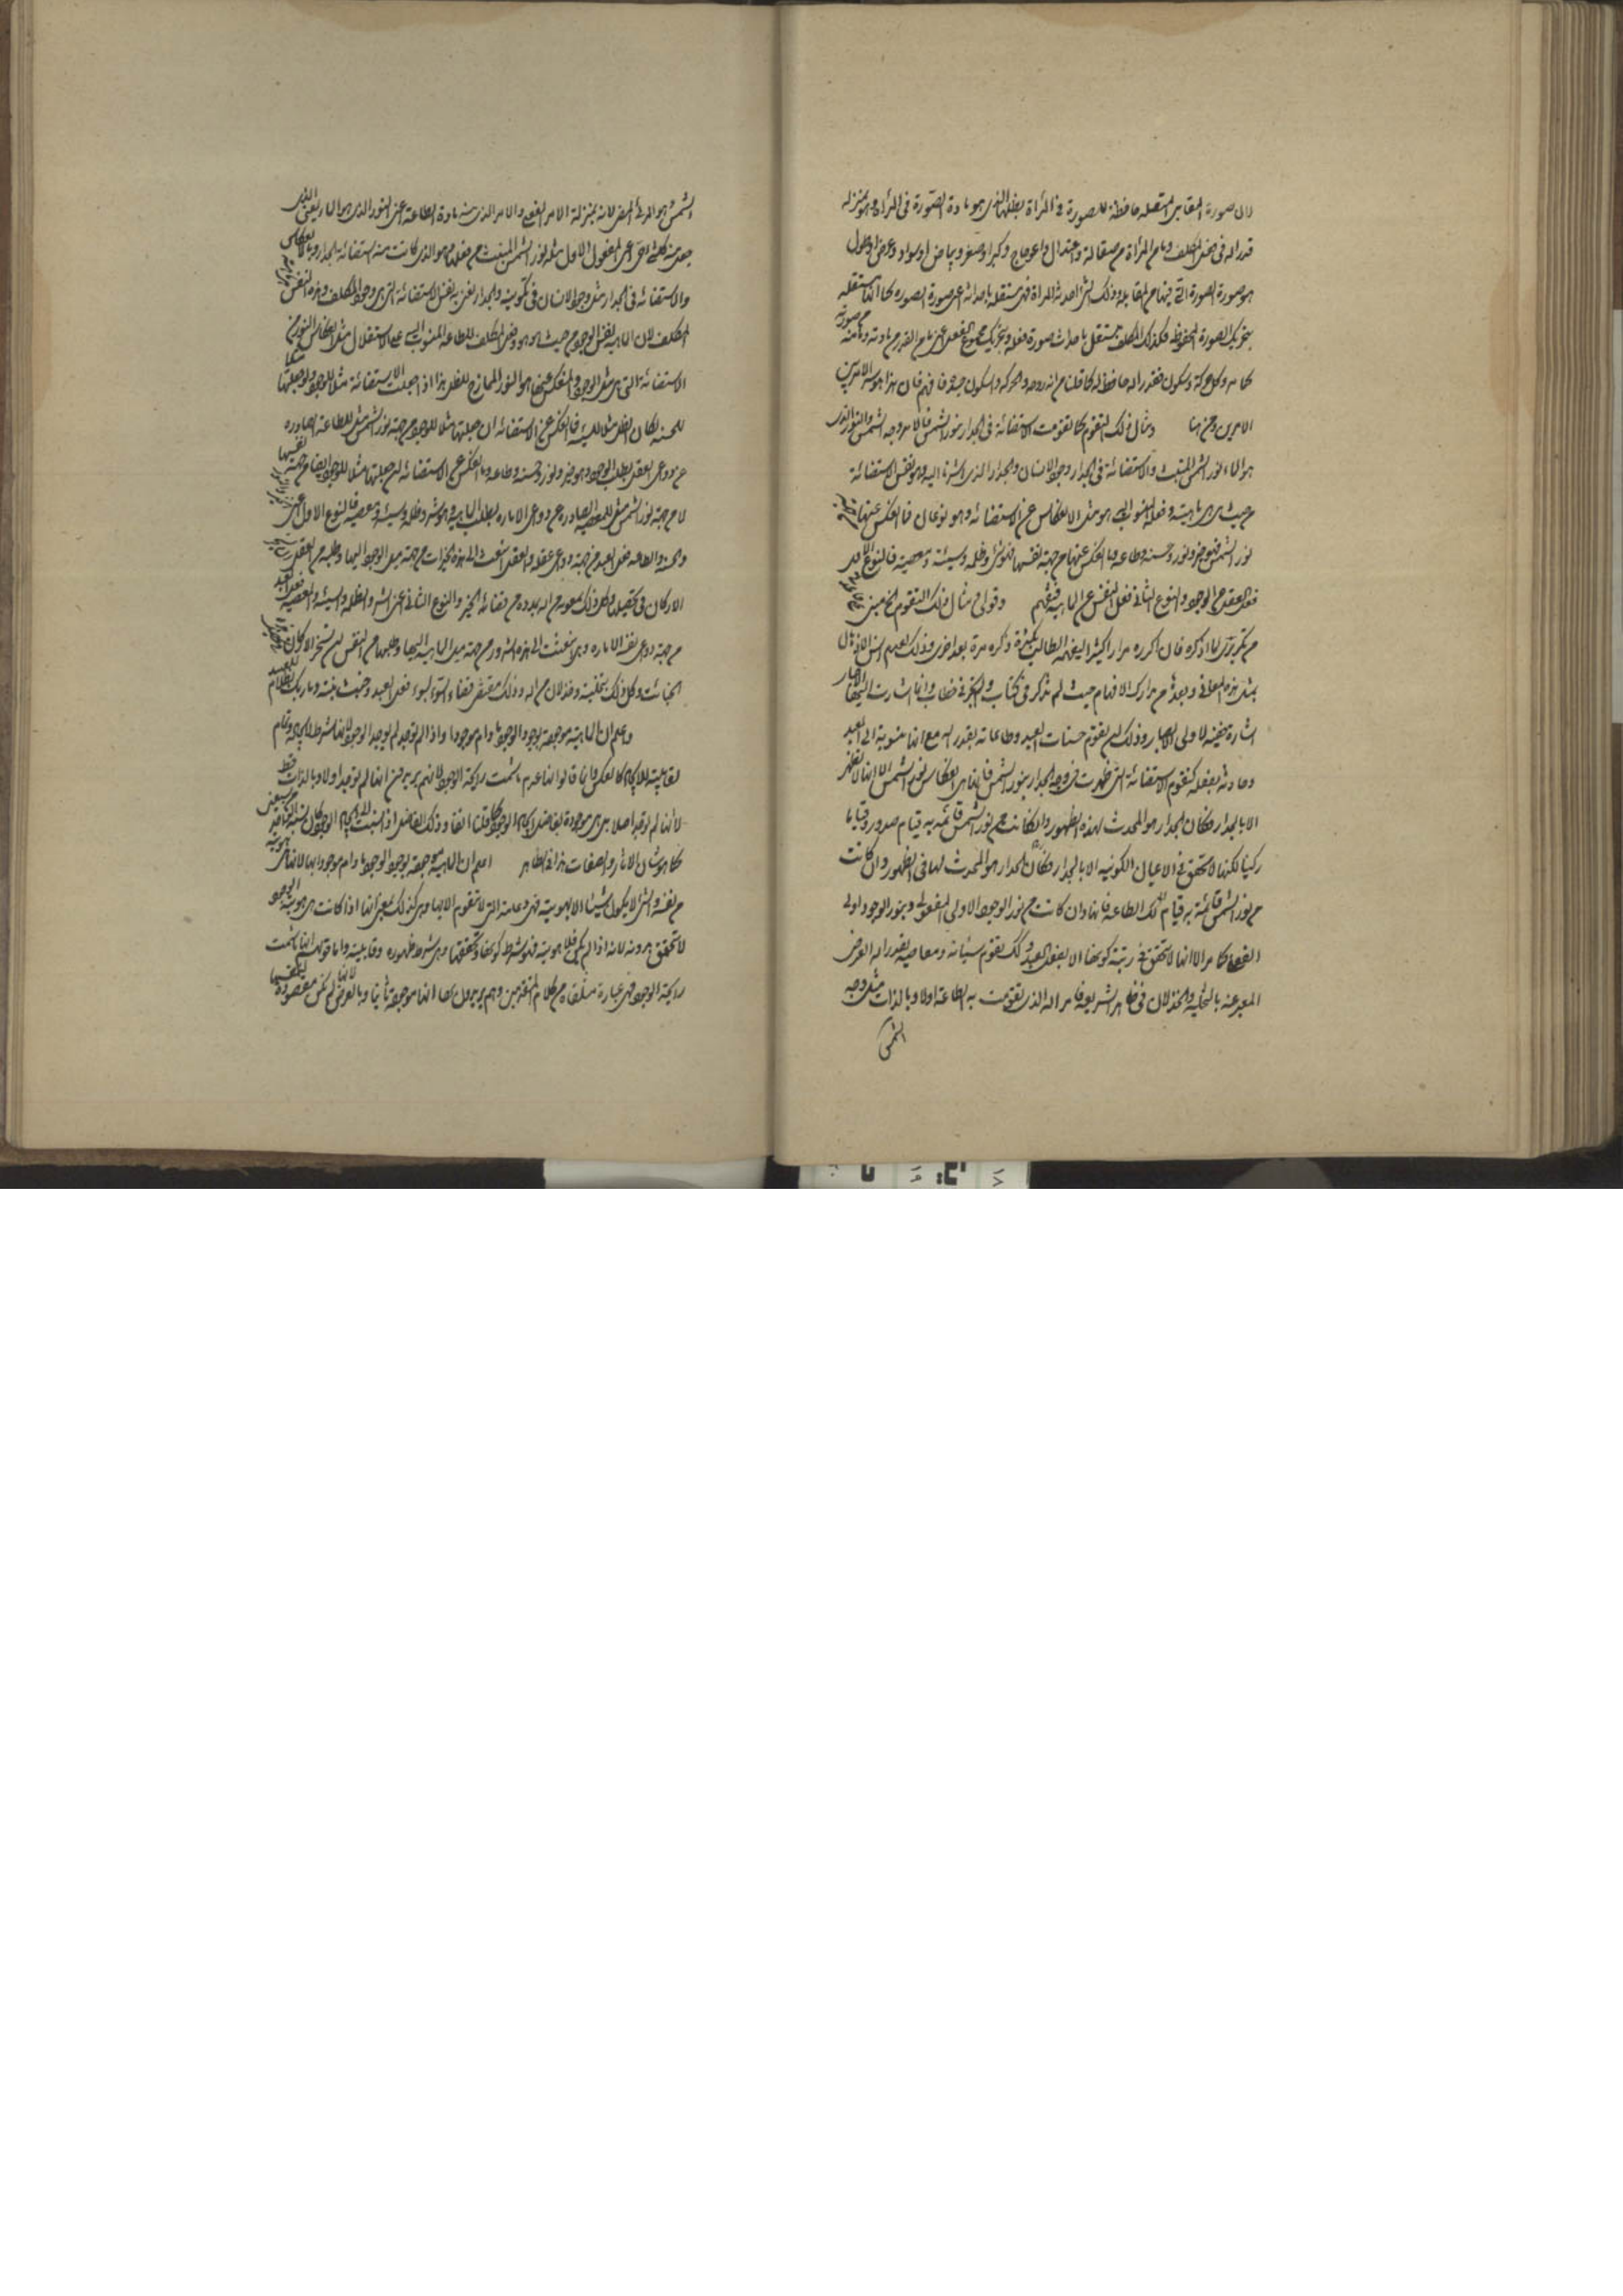 لان صورة المقابل المتصلة حافظة للصورة في المرآة بظلها الذي هو مادة الصورة في المرآة وهو بمنزلة
قدر الله في فعل المكلف وما من المرآة من صقالة واعتدال واعوجاج وكبر او صغر وبياض او سواد وعرض او طول
هو صورة الصورة التي فيها من المقابل وذلك اثر احدثه المرآة فهي مستقلة باحداثه اعني صورة الصورة كما انها مستقلة
بتحريك الصورة المحفوظة فكذلك المكلف مستقل باحداث صورة فعله وبتحريك مجموع الفعل اعني ما من القدر من مادته وما منه من صورته
كما مر وكل حركة وسكون فبقدر الله حافظ له كما قلنا من انه روحه والحركة والسكون جسده فافهم فان هذا هو سر الامر بين
الامرين ومن هنا ومثال ذلك التقوم كما تقومت الاستضاءة في الجدار بنور الشمس فالامر وجه الشمس والنور الذي
هو الماء نور الشمس المنبث والاستضاءة في الجدار وجود الانسان والجدار الذي اشرنا اليه وهو نفس الاستضاءة
من حيث هي ماهيته وفعله المنسوب اليه هو مثل الانعكاس عن الاستضاءة وهو نوعان فما انعكس عنها
نور الشمس فهو خير ونور وحسنة وطاعة وما انعكس عنها من جهة نفسها فهو شر وظلمة وسيئة ومعصية فالنوع الاول
فعل العقل من الوجود والنوع الثاني فعل النفس من الماهية فتفهم وقولي ومثال ذلك التقوم الخ مبني
من تكريري لما اذكره فان اكرره مرارا كثيرا ليفهمه الطالب بكثرة ذكره مرة بعد اخرى وذلك لعدم انس الاذهان
بمثل هذه المعاني وبعدها من مدارك الافهام حيث لم تذكر في كتاب ولم تجر في خطاب وانما اشارت اليها الاخبار
اشارة خفية لاولي الابصار وذلك ان تقوم حسنات العبد وطاعاته بقدر الله مع انها منسوبة الى العبد
وحادثة بفعله كتقوم الاستضاءة التي ظهرت في وجه الجدار بنور الشمس فانها هي انعكاس نور الشمس الا انها لا تظهر
الا بالجدار فكان الجدار هو المحدث لهذه الظهور وان كانت من نور الشمس قائمة به قيام صدور وقياما
ركنيا لكنها لا تتحقق في الاعيان الكونية الا بالجدار فكان الجدار هو المحدث لها في الظهور وان كانت
من نور الشمس قائمة به قيام تلك الطاعة فانها وان كانت من نور الوجود الاولي المفعولي وبنور الوجود الاولي
الفعلي كما مر الا انها لا تتحقق في رتبة كونها الا بفعل العبد وكذلك تقوم سيئاته ومعاصيه بقدر الله العرضي
المعبر عنه بالتخلية والخذلان في ظاهر الشريعة فامر الله الذي تقومت به الطاعة اولا وبالذات مثل وجه
الشمس
الشمس هو المرئي المضيء لانه بمنزلة الامر الفعلي والامر الذي منه مادة الطاعة اعني النور الذي هو الماء يعني الذي
جعل منه كل شيء حي اعني المفعول الاول مثله نور الشمس المنبث من فعلها وهو الذي كانت منه استضاءة الجدار وبانعكاس
والاستضاءة في الجدار مثل وجود الانسان في تكوينه والجدار اعني به نفس الاستضاءة التي هي وجود المكلف وهذه النفس
المكلف لان الماهية نفس الوجود من حيث هو هو وفعل المكلف للطاعة المنسوب اليه على الاستقلال مثل انعكاس النور من
الاستضاءة التي هي مثل الوجود والمنعكس عنها هو النور الممازج للظل هذا اذا جعلت الاستضاءة مثلا للوجود ولو جعلتها مثلا
للحسنة لكان الظل مثلا للسيئة فما انعكس عن الاستضاءة ان جعلتها مثلا للوجود من جهة نور الشمس مثل للطاعة الصادرة
عن دواعي العقل بطلب الوجود وهو خير ونور وحسنة وطاعة وما انعكس عن الاستضاءة ان جعلتها مثلا للوجود ايضا من جهة نفسها
لا من جهة نور الشمس مثل للمعصية الصادرة عن دواعي الامارة بطلب الماهية وهو شر وظلمة وسيئة ومعصية فالنوع الاول اعني
والحسنة والطاعة فعل العبد من جهة دواعي عقله والعقل انبعث الى هذه الخيرات من جهة ميل الوجود اليها وطلبه من العقل
الاركان في تحصيلها وكل ذلك بمعونة من الله بمدده من قضائه الخير والنوع الثاني اعني الشر والظلمة والسيئة والمعصية فعل العبد
من جهة دواعي نفسه الامارة وهي انبعثت الى هذه الشرور من جهة ميل الماهية اليها وطلبها من النفس ان تسخر الاركان
الخبائث وكل ذلك بتخلية وخذلان من الله وذلك مقتضى قضاء السوء لسوء فعل العبد وخبث نيته وما ربك بظلام للعبيد
واعلم ان الماهية موجودة بوجود الوجود ما دام موجودا واذا لم توجد لم يوجد الوجود لانها شرط لايجاده وتمام
لقابليته للايجاد كالعكس وانما قالوا انها عدم ما شمت رائحة الوجود لانهم يريدون انها لم توجد اولا وبالذات فقط
لا انها لم توجد اصلا بل هي موجودة بفاضل ايجاد الوجود كما قلنا آنفا وذلك الفاضل اذا نسبته لايجاد الوجود كان نسبته جزء من سبعين
كما هو شان الآثار والصفات هذا في الظاهر اعلم ان الماهية موجودة بوجود الوجود ما دام موجودا بها لانها هي هويته
من نفسه والشيء لا يكون شيئا الا بهويته فهي دعامته التي لا تتقوم الا بها وهي كذلك بمعنى انها اذا كانت هي هوية الوجود
لا تتحقق بدونه لانه اذا لم يكن فلا هوية فهو شرط كونها وتحققها وهي شرط ظهوره وقابليته واما قولهم انها ما شمت
رائحة الوجود فهي عبارة متلقاة من كلام المتقدمين وهم يريدون بها انها موجودة ثانيا وبالعرض لانها لم تكن مقصودة لنفسها